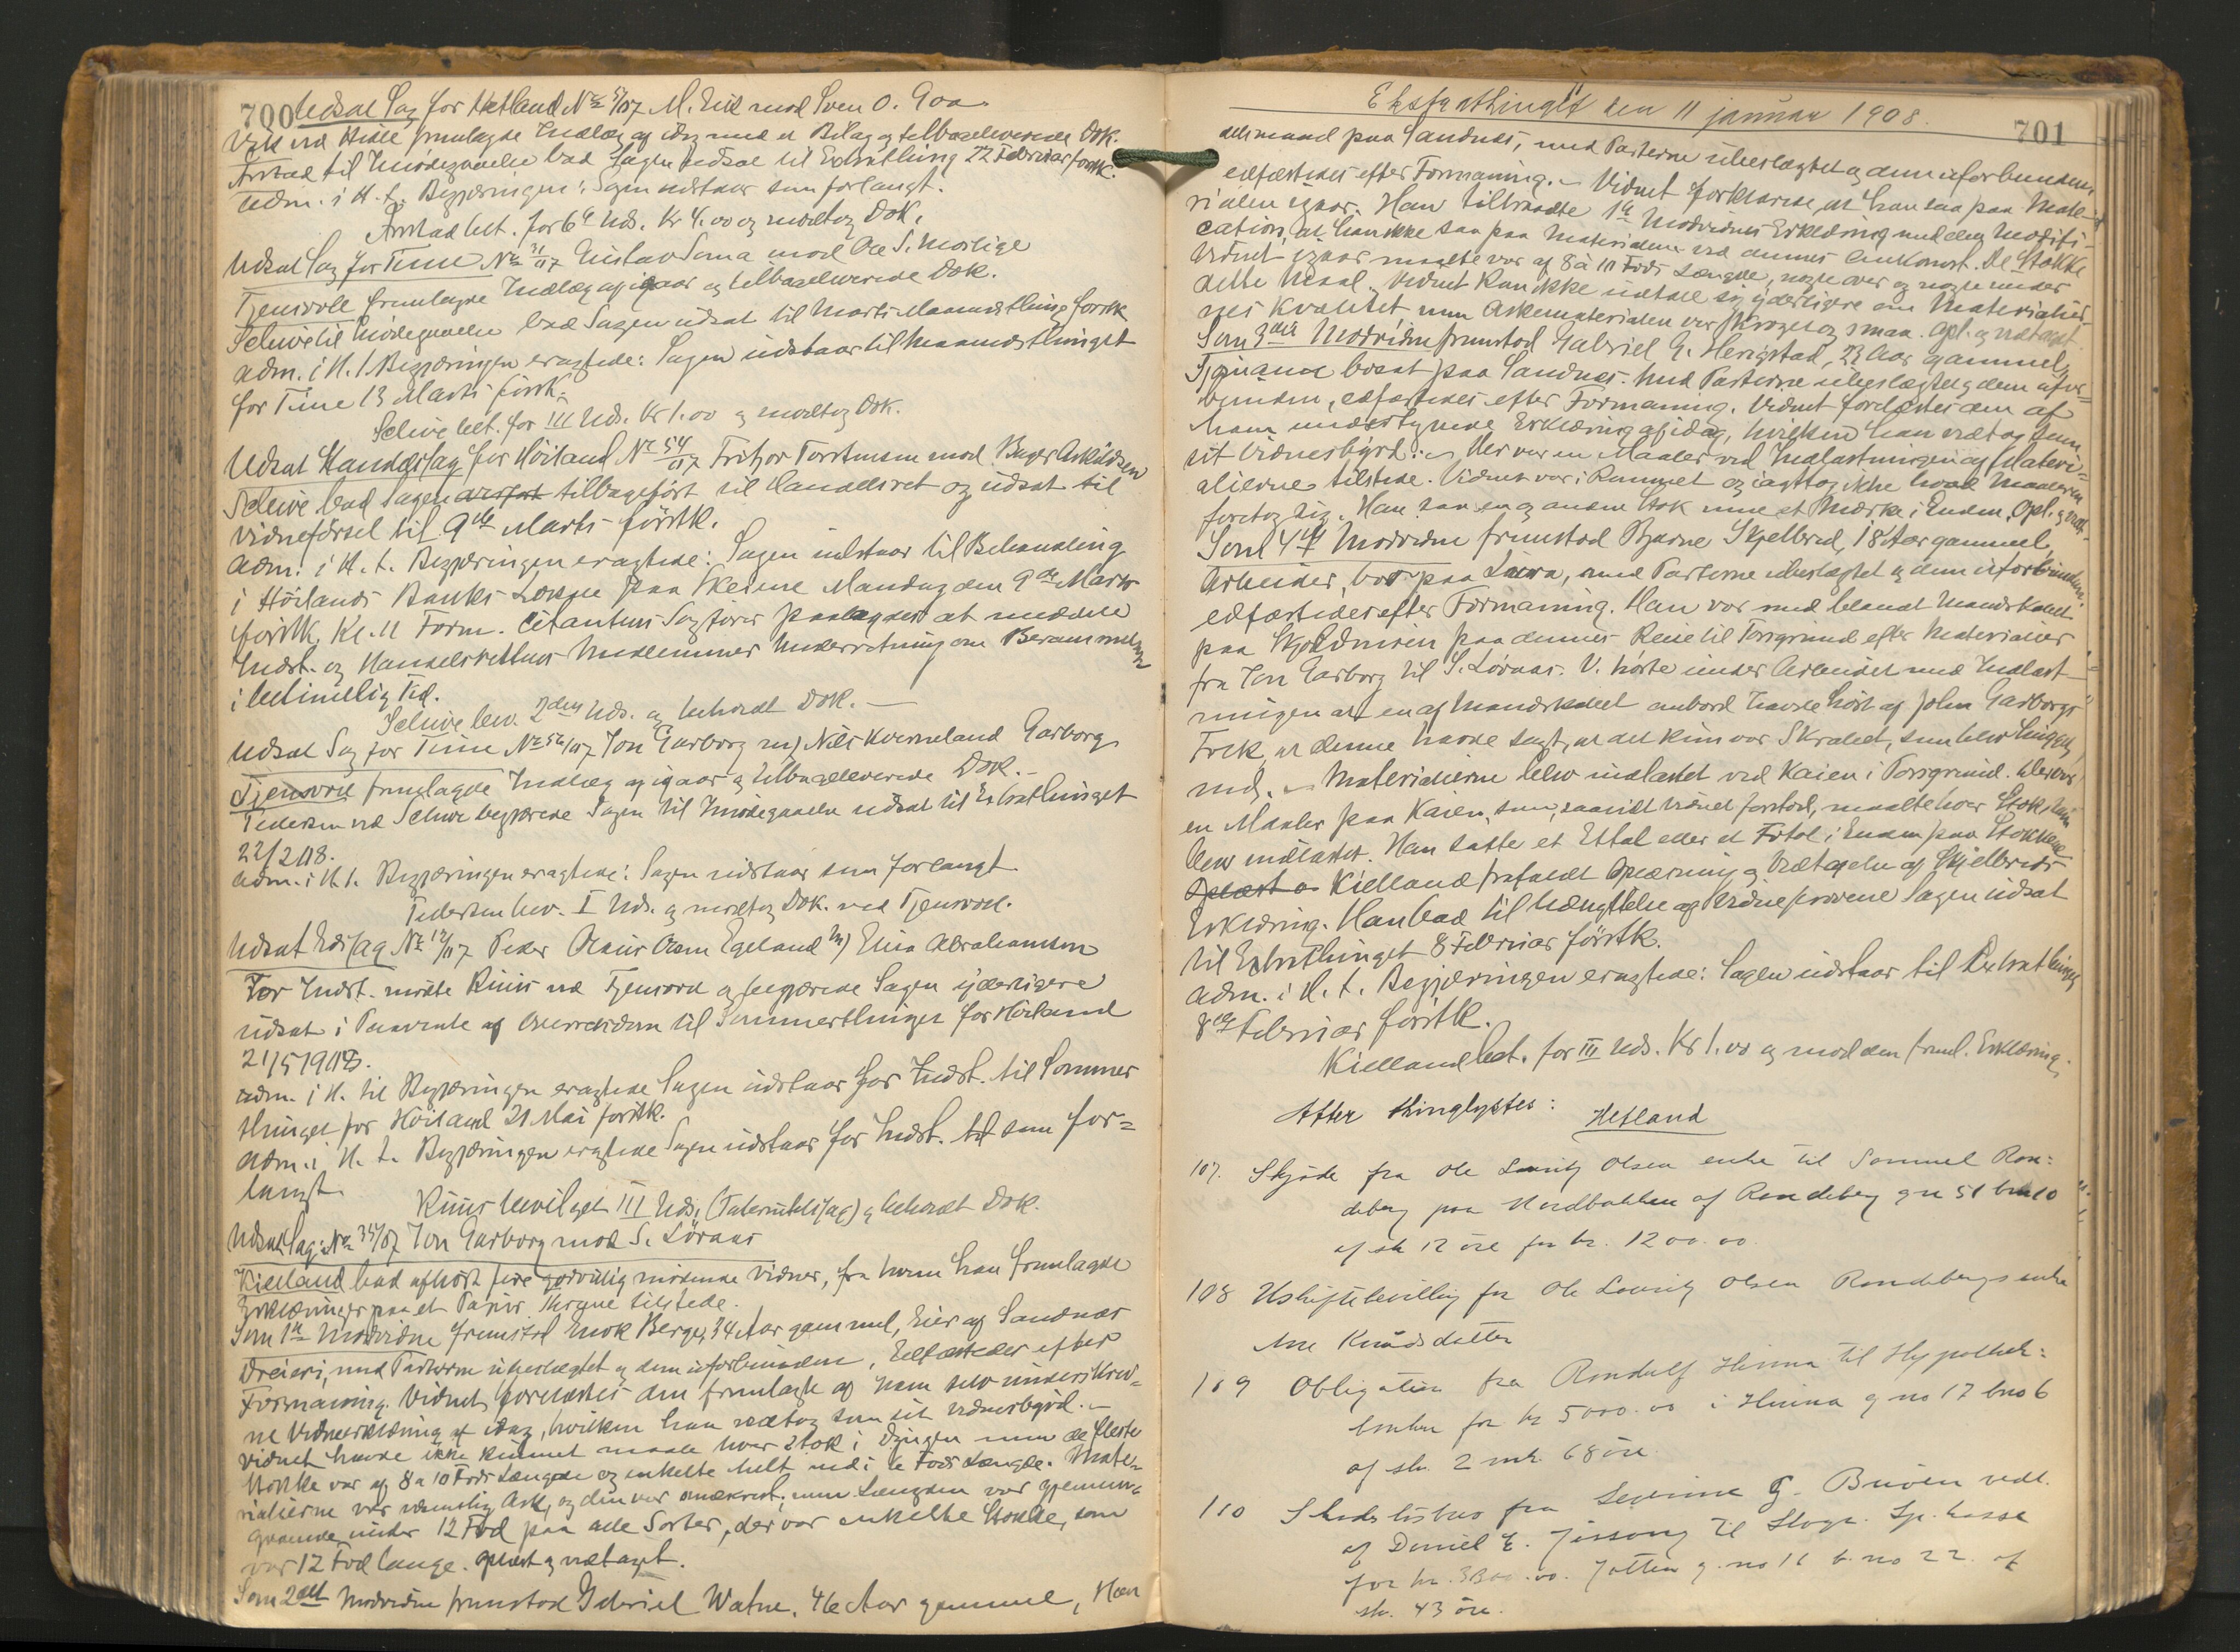 700 Udsat Sag for Hetland No 51/07 M. Eid mod Sven O. Goa
Vik ved Kielle fremlagde Indlæg af idag med et Bilag og tilbageleverede Dok.
Arstad til Imødegaaelse bad Sagen udsat til Extrathing 22 Februar førstk.
Adm. i H. t. Begjæringen: Sagen udstaar som forlangt.
Arstad bet. for 6te Uds. Kr 4.00 og modtog Dok.
Udsat Sag for Time No 31/07 Gustav Soma mod Ole S. Motlige
Tjensvoll fremlagde Indlæg af igaar og tilbageleverede Dok.
Schive til Imødegaaelse bad Sagen udsat til Marts Maanedsthing førstk
Adm. i H. t. Begjæringen eragtede: Sagen udstaar til Maanedsthinget
for Time 13 Marts førstk.
Schive bet. for III Uds. Kr 1.00 og modtog Dok.
Udsat Handelssag for Höiland No 54/07 Fritjor Torstensen mod Bager Aslaksen
Schive bad Sagen tilbageført til Handelsret og udsat til
Vidneførsel til 9de Marts førstk.
Adm. i H. t. Begjæringen eragtede: Sagen udstaar til Behandling
i Höilands Banks Lokale paa Skeiene Mandag den 9de Marts
førstk. Kl. 11 Form. Citantens Sagfører paalagdes at meddele
Indst. og Handelsrettens Medlemmer Underretning om Berammelsen
i betimelig Tid.
Schive bev. 2den Uds. og beholdt Dok. —
Udsat Sag for Time No 56/07 Jon Garborg m) Nils Kverneland Garborg
Tjensvoll fremlagde Indlæg af igaar og tilbageleverede Dok. —
Pedersen ved Schive begjærede Sagen til Imødegaaelse udsat til Extrathinget
22/2 08.
Adm. i H. t. Begjæringen eragtede: Sagen udstaar som forlangt
Pedersen bev. I Uds. og modtog Dok. ved Tjensvoll.
Udsat Sag No 12/07 Peder Olaus Olsen Egeland m) Elisa Abrahamsen
For Indst. mødte Ruus ved Tjensvold og begjærede Sagen yderligere
udsat i Paavente af til Sommerthinget for Höiland
21/5 1908.
Adm. i H. til Begjæringen eragtede Sagen udstaar for Indst. til Sommer
thinget for Höiland 21 Mai førstk.
Adm. i H. t. Begjæringen eragtede Sagen udstaar for Indst. som for=
langt.
Ruus bevilget III Uds. og beholdt Dok.
Udsat Sag: No 35/07 Jon Garborg mod S. Löraas
Kielland bad afhørt fire godvillig mødende Vidner, fra hvem han fremlagde
Erklæringer paa et Papir. Skrane tilstede.
Som 1te Modvidne fremstod Enok Berge, 34 Aar gammel, Eier af Sandnæs
Dreieri, med Parterne ubeslægtet og dem uforbunden. Edfæstedes efter
Formaning. Vidnet forelæstes den fremlagte af ham selv underskrev=
ne Vidneerklæring af idag, hvilken han vedtog som sit Vidnesbyrd. —
Vidnet havde ikke kunnet maale hver Stok i Dyngen men de fleste
Stokke var af 8 a 10 Fods Længde og enkelte helt ned i 6 Fods Længde. Mate=
rialierne var nemlig Ask, og den var men Længden var gjennem=
gaaende under 12 Fod paa alle Sorter, der var enkelte Stokke, som
var 12 Fod lange. Oplæst og vedtaget.
Som 2det Modvidne fremstod Gabriel Watne, 46 Aar gammel, Han
Ekstrathinget den 11 januar 1908. 701
delsmand paa Sandnes, med Parterne ubeslægtet og dem uforbunden,
edfæstedes efter Formaning. — Vidnet forklarede, at han saa paa Mate=
rialen igaar. Han tiltraadte 1te Modvidnes Erklæring med den Modifi-
cation, at han ikke saa paa Materialen ved dennes Ankomst. De Stokke
Vidnet igaar maalte var af 8 à 10 Fods Længde, nogle over og nogle under
dette Maal. Vidnet kan ikke udtale sig yderligere om Materialier
nes Kvalitet, men Askematerialen var Kroget og smaa. Opl. og vedtaget.
Som 3die Modvidne fremstod Gabriel G. Herigstad, 23 Aar gammel,
Sjømand bosat paa Sandnes. Med Parterne ubeslægtet og dem ufor=
bunden, edfæstedes efter Formaning. Vidnet forelæstes den af
ham underskrevne Erklæring af idag, hvilken han vedtog som
sit Vidnesbyrd. — Der var en Maaler ved Indlastningen af Materi=
alierne tilstede. Vidnet var i Rummet og iagttog ikke hvad Maaleren
foretog sig. Han saa en og anden Stok med et Mærke i Enden. Opl. og vedt.
Som 4de Modvidne fremstod Bjarne Skjelbred, 18 Aar gammel,
Arbeider, bor paa Lura, med Parterne ubeslægtet og dem uforbunden.
edfæstedes efter Formaning. Han var med blandt Mandskabet
paa Skjoldmøen paa dennes Reise til Porsgrund efter Materialier
fra Jon Garborg til S. Löraas. V. hørte under Arbeidet med Indlast-
ningen at en af Mandskabet ombord havde hørt af John Garborgs
Folk, at denne havde sagt, at det kun var Skrabet, som blev liggende
ned. — Materialierne blev indlastet ved Kaien i Porsgrund. Der var
en Maaler paa Kaien, som, saavidt Vidnet forstod, maalte hver Stok, som
blev indlastet. Han satte et Ettal eller et Fotal i Enden paa Stokkene
Kielland frafaldt Oplæsning og Vedtagelse af Skjelbreds
Erklæring. Han bad til af Vidneprovene Sagen udsat
til Extrathinget 8 Februar førstk.
Adm. i H. t. Begjæringen eragtede: Sagen udstaar til Extrathinget
8de Februar førstk.
Kielland bet. for III Uds. Kr 1.00 og modtog den freml. Erklæring.
Atter thinglystes: Hetland
107. Skjøde fra Ole Lauritz Olsens enke til Samuel Ran=
deberg paa Nordbakken af Randeberg gn 51 bno 10
af sk 12 öre for kr. 1200.00.
108 Uskiftebevilling for Ole Lauritz Olsen Randebergs enke
Ane Knudsdatter
109 Obligation fra Randulf Hinna til Hypothek=
banken for kr 5000.00 i Hinna g no 17 bno 6
af sk. 2 mk. 68 öre.
110 Skadeslösbrev fra Serine G. Bruen vedt.
af Daniel E. Jåssang til Stavgr. Sp. kasse
for kr. 3800.00. Jåtten g. no 16 b. no 22 af
sk. 43 öre.